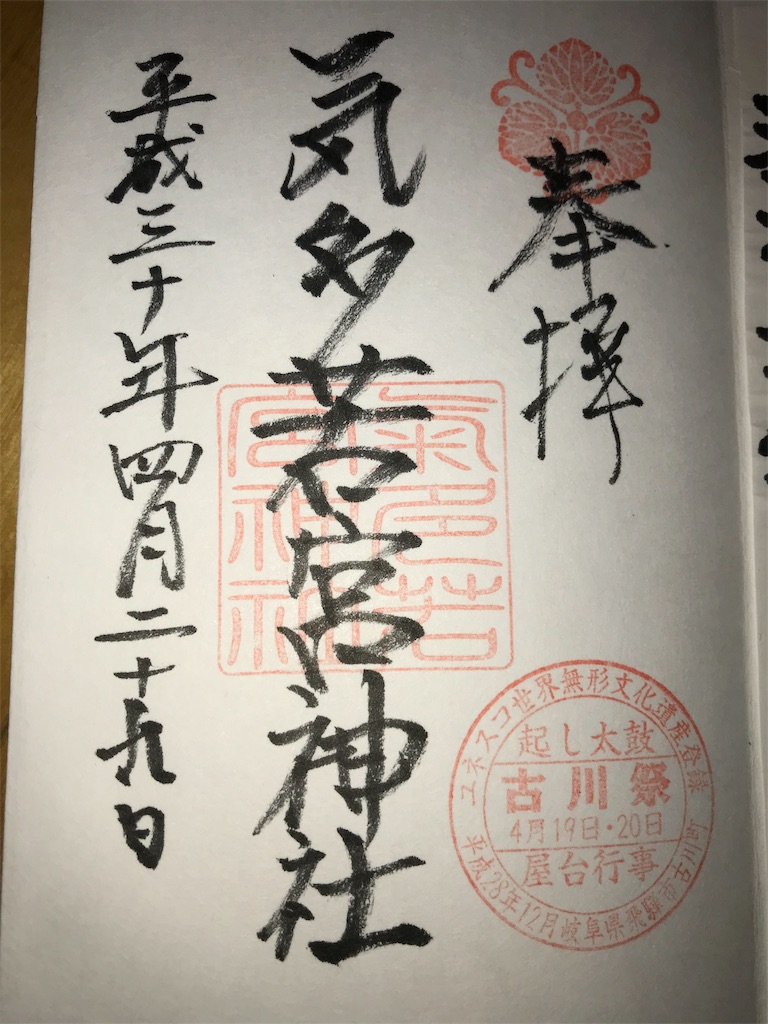 奉拝
気多若宮神社
平成三十年四月二十九日
氣多若
宮神社
ユネスコ世界無形文化遺産登録
起し太鼓
古川祭
4月19日・20日
屋台行事
平成28年12月岐阜県飛騨市